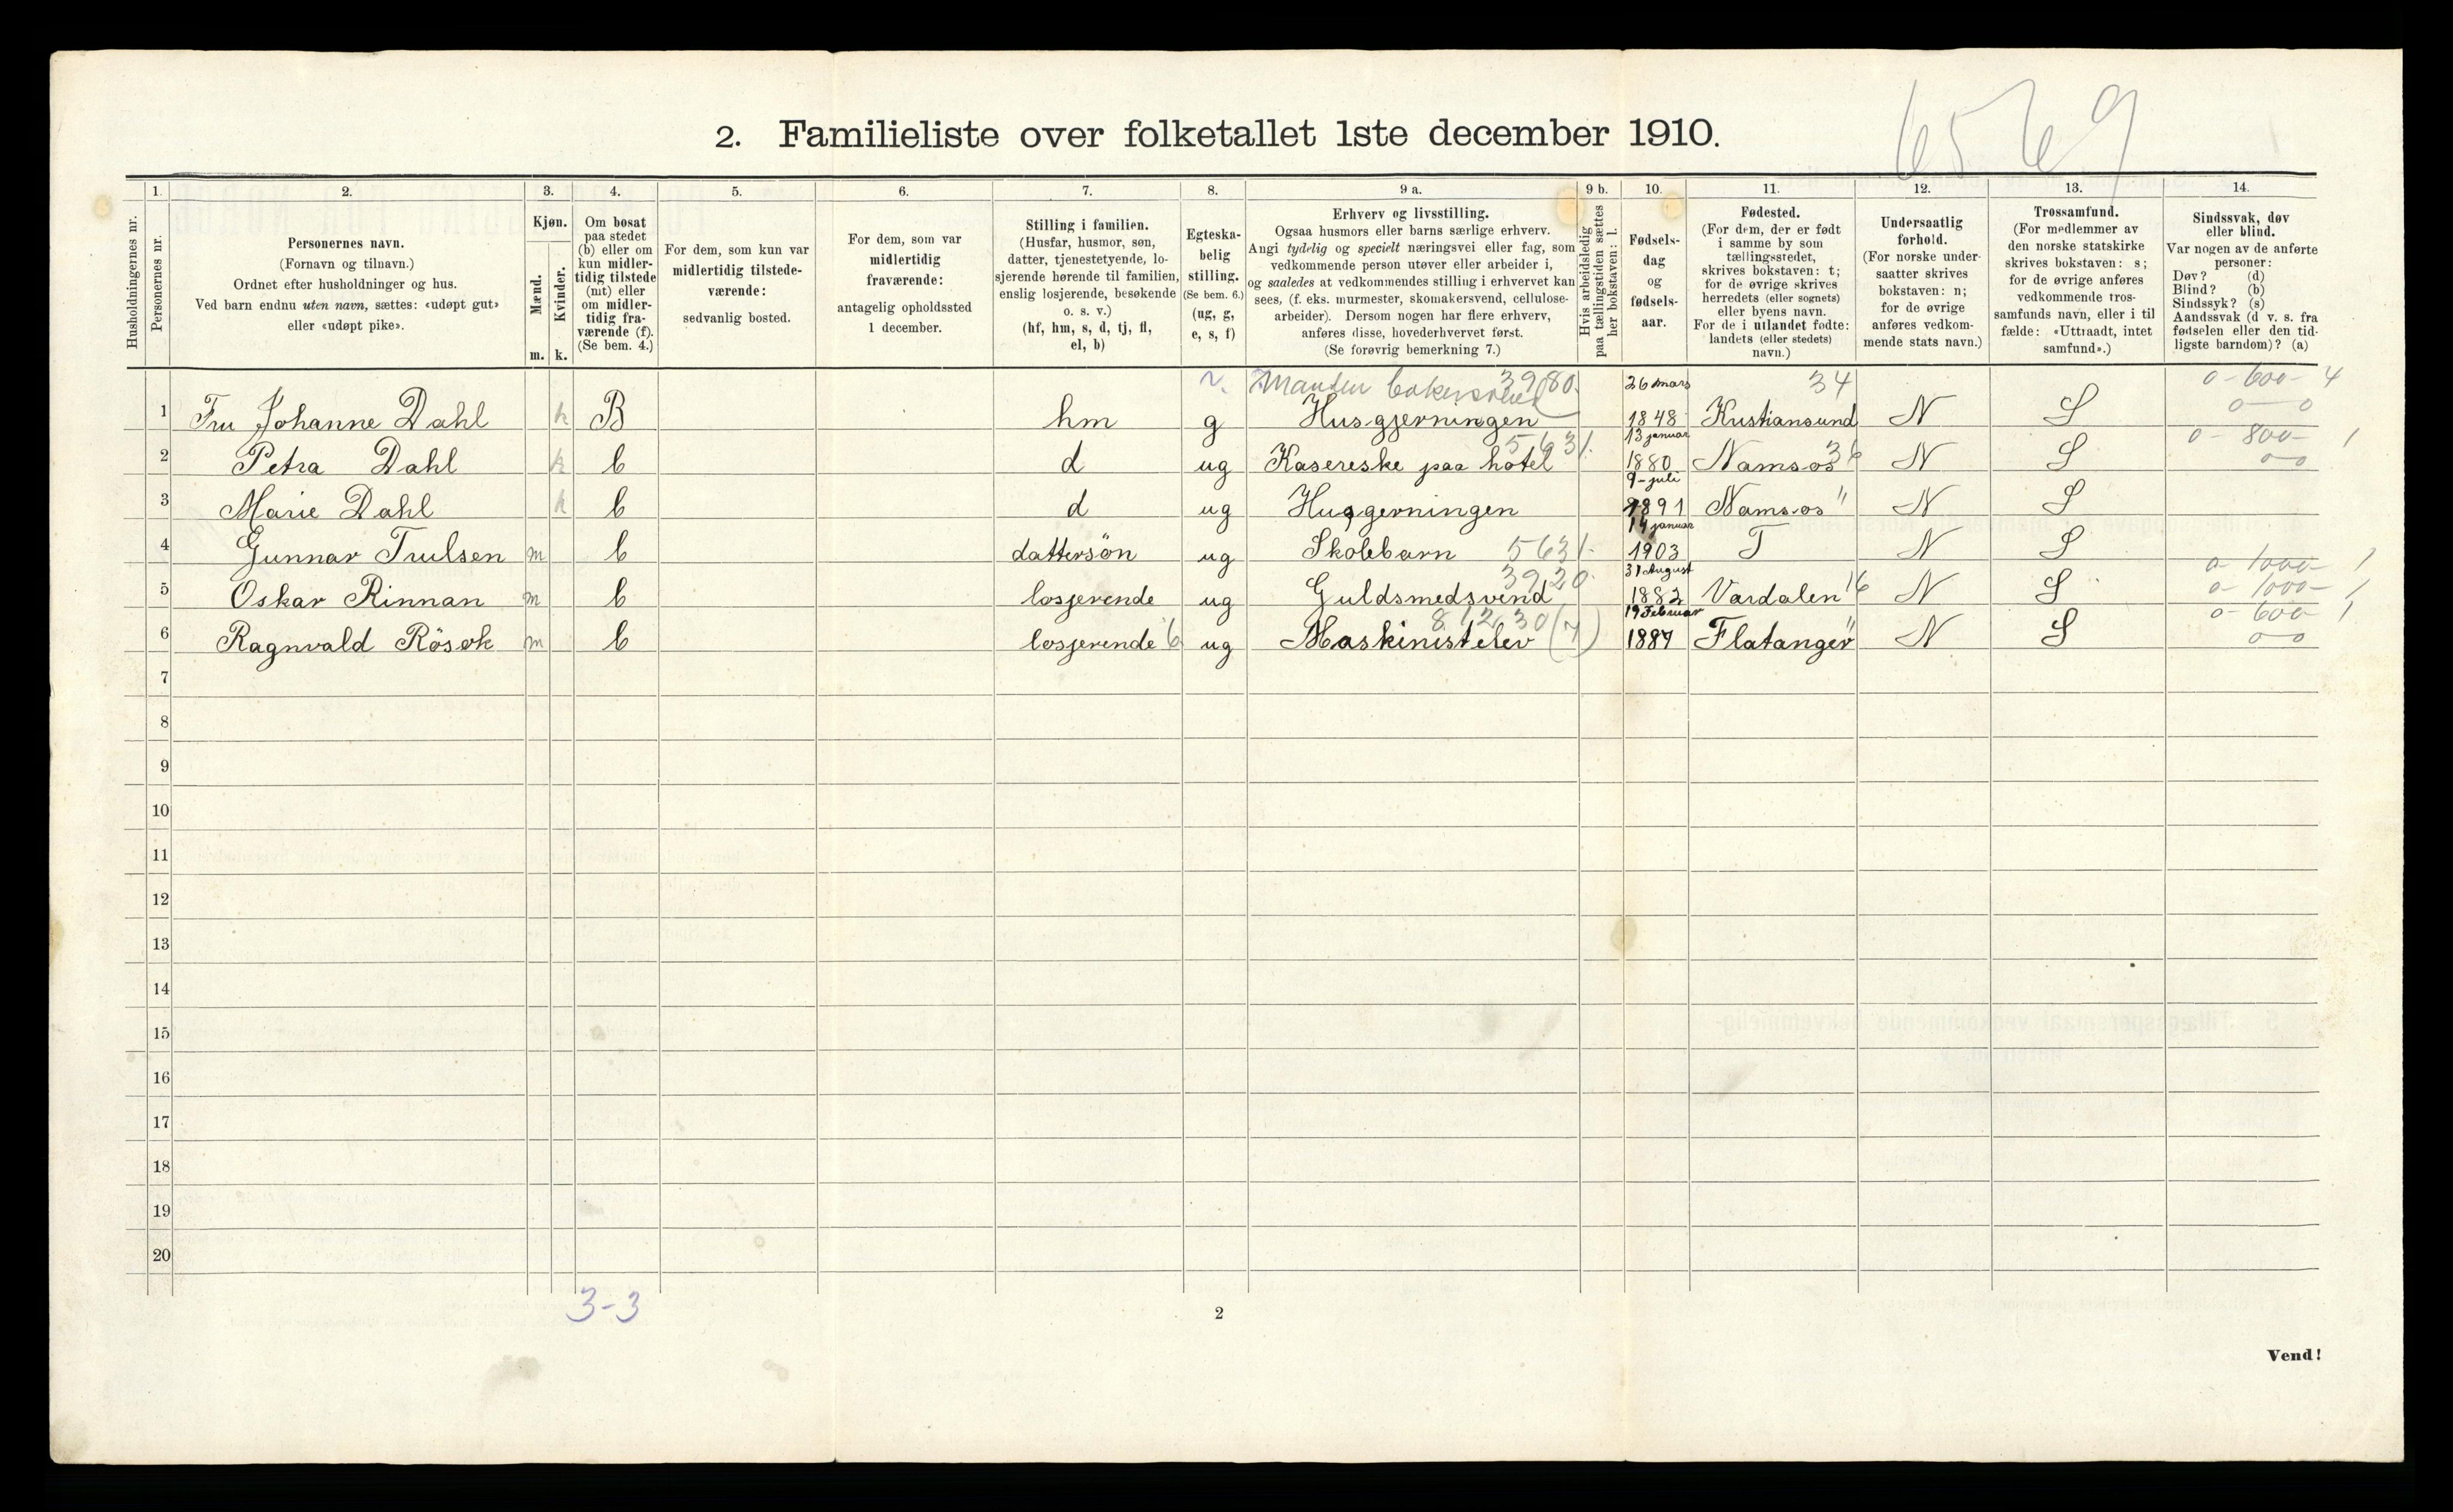 6569
2. Familieliste over folketallet 1ste december 1910.
Husholdningernes nr.
1.
Personernes nr.
2.
Personernes navn.
(Fornavn og tilnavn.)
Ordnet efter husholdninger og hus.
Ved barn endnu uten navn, sættes: «udøpt gut»
eller «udøpt pike».
3.
Kjøn.
Mænd.
Kvinder.
m. k.
4.
Om bosat
paa stedet
(b) eller om
kun midler-
tidig tilstede
(mt) eller
om midler-
tidig fra-
værende (f).
(Se bem. 4.)
5.
For dem, som kun var
midlertidig tilstede-
værende:
sedvanlig bosted.
6.
For dem, som var
midlertidig
fraværende:
antagelig opholdssted
1 december.
7.
Stilling i familien.
(Husfar, husmor, søn,
datter, tjenestetyende, lo-
sjerende hørende til familien,
enslig losjerende, besøkende
o. s. v.)
(hf, hm, s, d, tj, fl,
el, b)
8.
Egteska-
belig
stilling.
(Se bem. 6.)
(ug, g,
e, s, f)
9 a.
Erhverv og livsstilling.
Ogsaa husmors eller barns særlige erhverv.
Angi tydelig og specielt næringsvei eller fag, som
vedkommende person utøver eller arbeider i,
og saaledes at vedkommendes stilling i erhvervet kan
sees, (f. eks. murmester, skomakersvend, cellulose-
arbeider). Dersom nogen har flere erhverv,
anføres disse, hovederhvervet først.
(Se forøvrig bemerkning 7.)
9 b.
Hvis arbeidsledig
paa tællingstiden sættes
her bokstaven: l.
10.
Fødsels-
dag
og
fødsels-
aar.
11.
Fødested.
(For dem, der er født
i samme by som
tællingsstedet,
skrives bokstaven: t;
for de øvrige skrives
herredets (eller sognets)
eller byens navn.
For de i utlandet fødte:
landets (eller stedets)
navn.)
12.
Undersaatlig
forhold.
(For norske under-
saatter skrives
bokstaven: n;
for de øvrige
anføres vedkom-
mende stats navn.)
13.
Trossamfund.
(For medlemmer av
den norske statskirke
skrives bokstaven: s;
for de øvrige anføres
vedkommende tros-
samfunds navn, eller i til
fælde: «Uttraadt, intet
samfund».)
14.
Sindssvak, døv
eller blind.
Var nogen av de anførte
personer:
Døv? (d)
Blind? (b)
Sindssyk? (s)
Aandssvak (d v. s. fra
fødselen eller den tid-
ligste barndom)? (a)
Manden 3980. 26 mars 34 0-600- 4
1 Fru Johanne Dahl k B hm g Husgjerningen 1848 Kristiansund N S 0—0
5631. 13 januar 36 0- 800- 1
2 Petra Dahl k b d ug Kasereske paa hotel 1880 Namsos N S 0-0
9-juli
3 Marie Dahl k b d ug Husgerningen 1891 Namsos " N S
14 januar
4 Gunnar Trulsen m b dattersön ug Skolebarn 5631. 1903 T N S
3920. 31 August 0- 1000- 1
5 Oskar Rinnan m b losjerende ug Guldsmedsvend 1882 Vardalen 16 N S 0- 1000- 1
812,30 19 Februar 0- 600- 1
6 Ragnvald Rösok m b losjerende 6 ug Maskinistelev (7) 1887 Flatanger " N S 0-0
7
8
9
10
11
12
13
14
15
16
17
18
19
20
3-3
2
Vend!